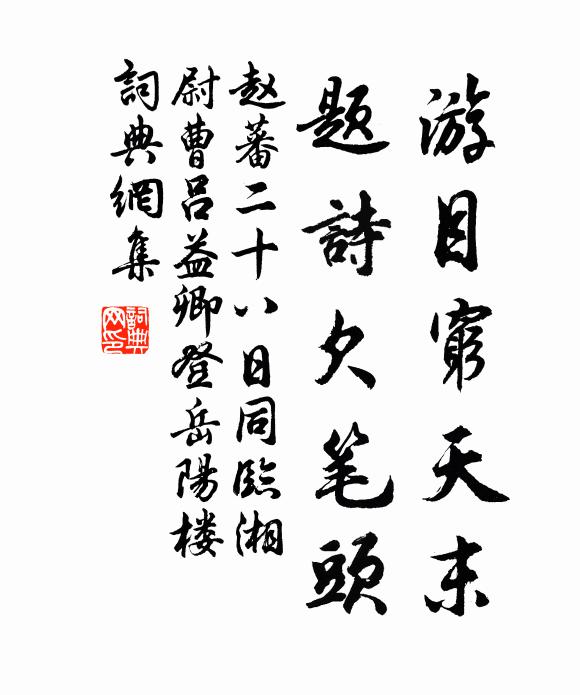 游目窮天末
题詩欠笔頭
赵蕃二十八日同臨湘
尉曹吕益卿登岳陽楼
詞典網集
詞典
网印